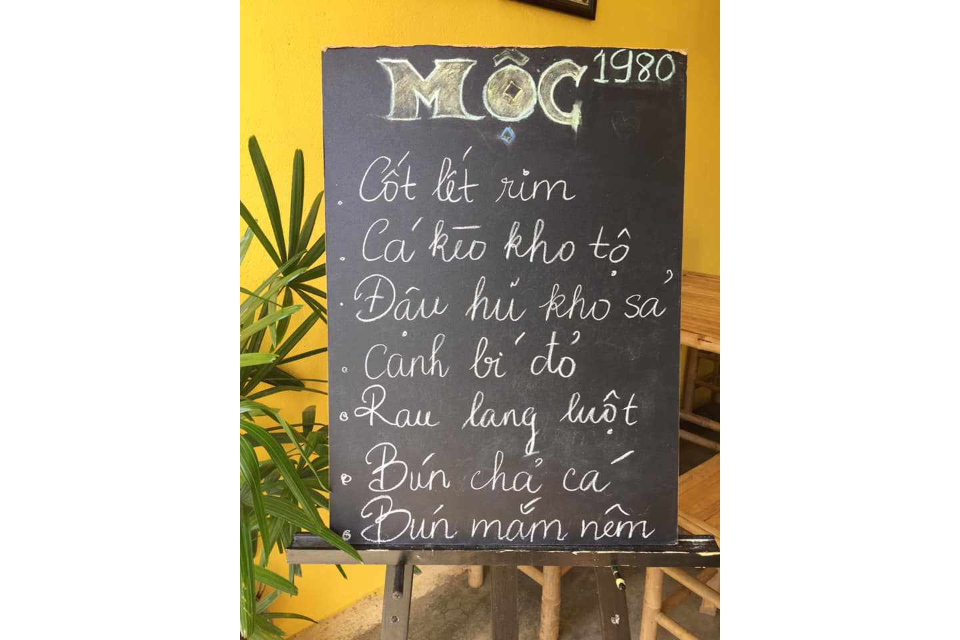 MỘC 1980
Cốt lết rim
Cá kèo kho tộ
Đậu hũ kho sả
Canh bí đỏ
Rau lang luột
Bún chả cá
Bún mắm nêm